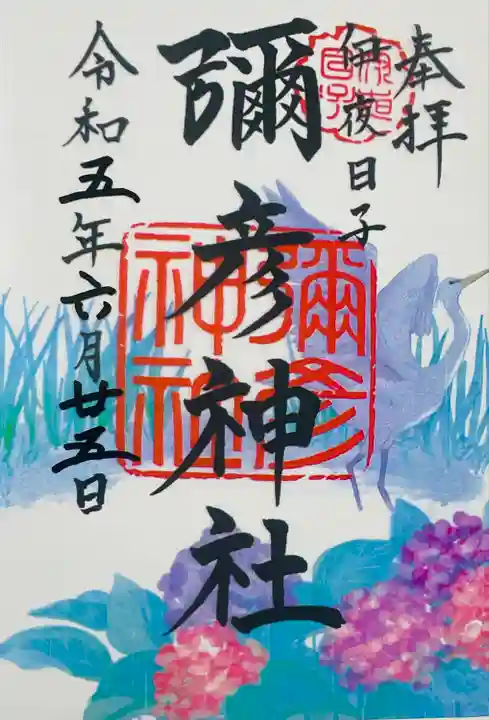 奉拝
伊夜日子
彌彦神社
彌彦神社
令和五年六月廿五日